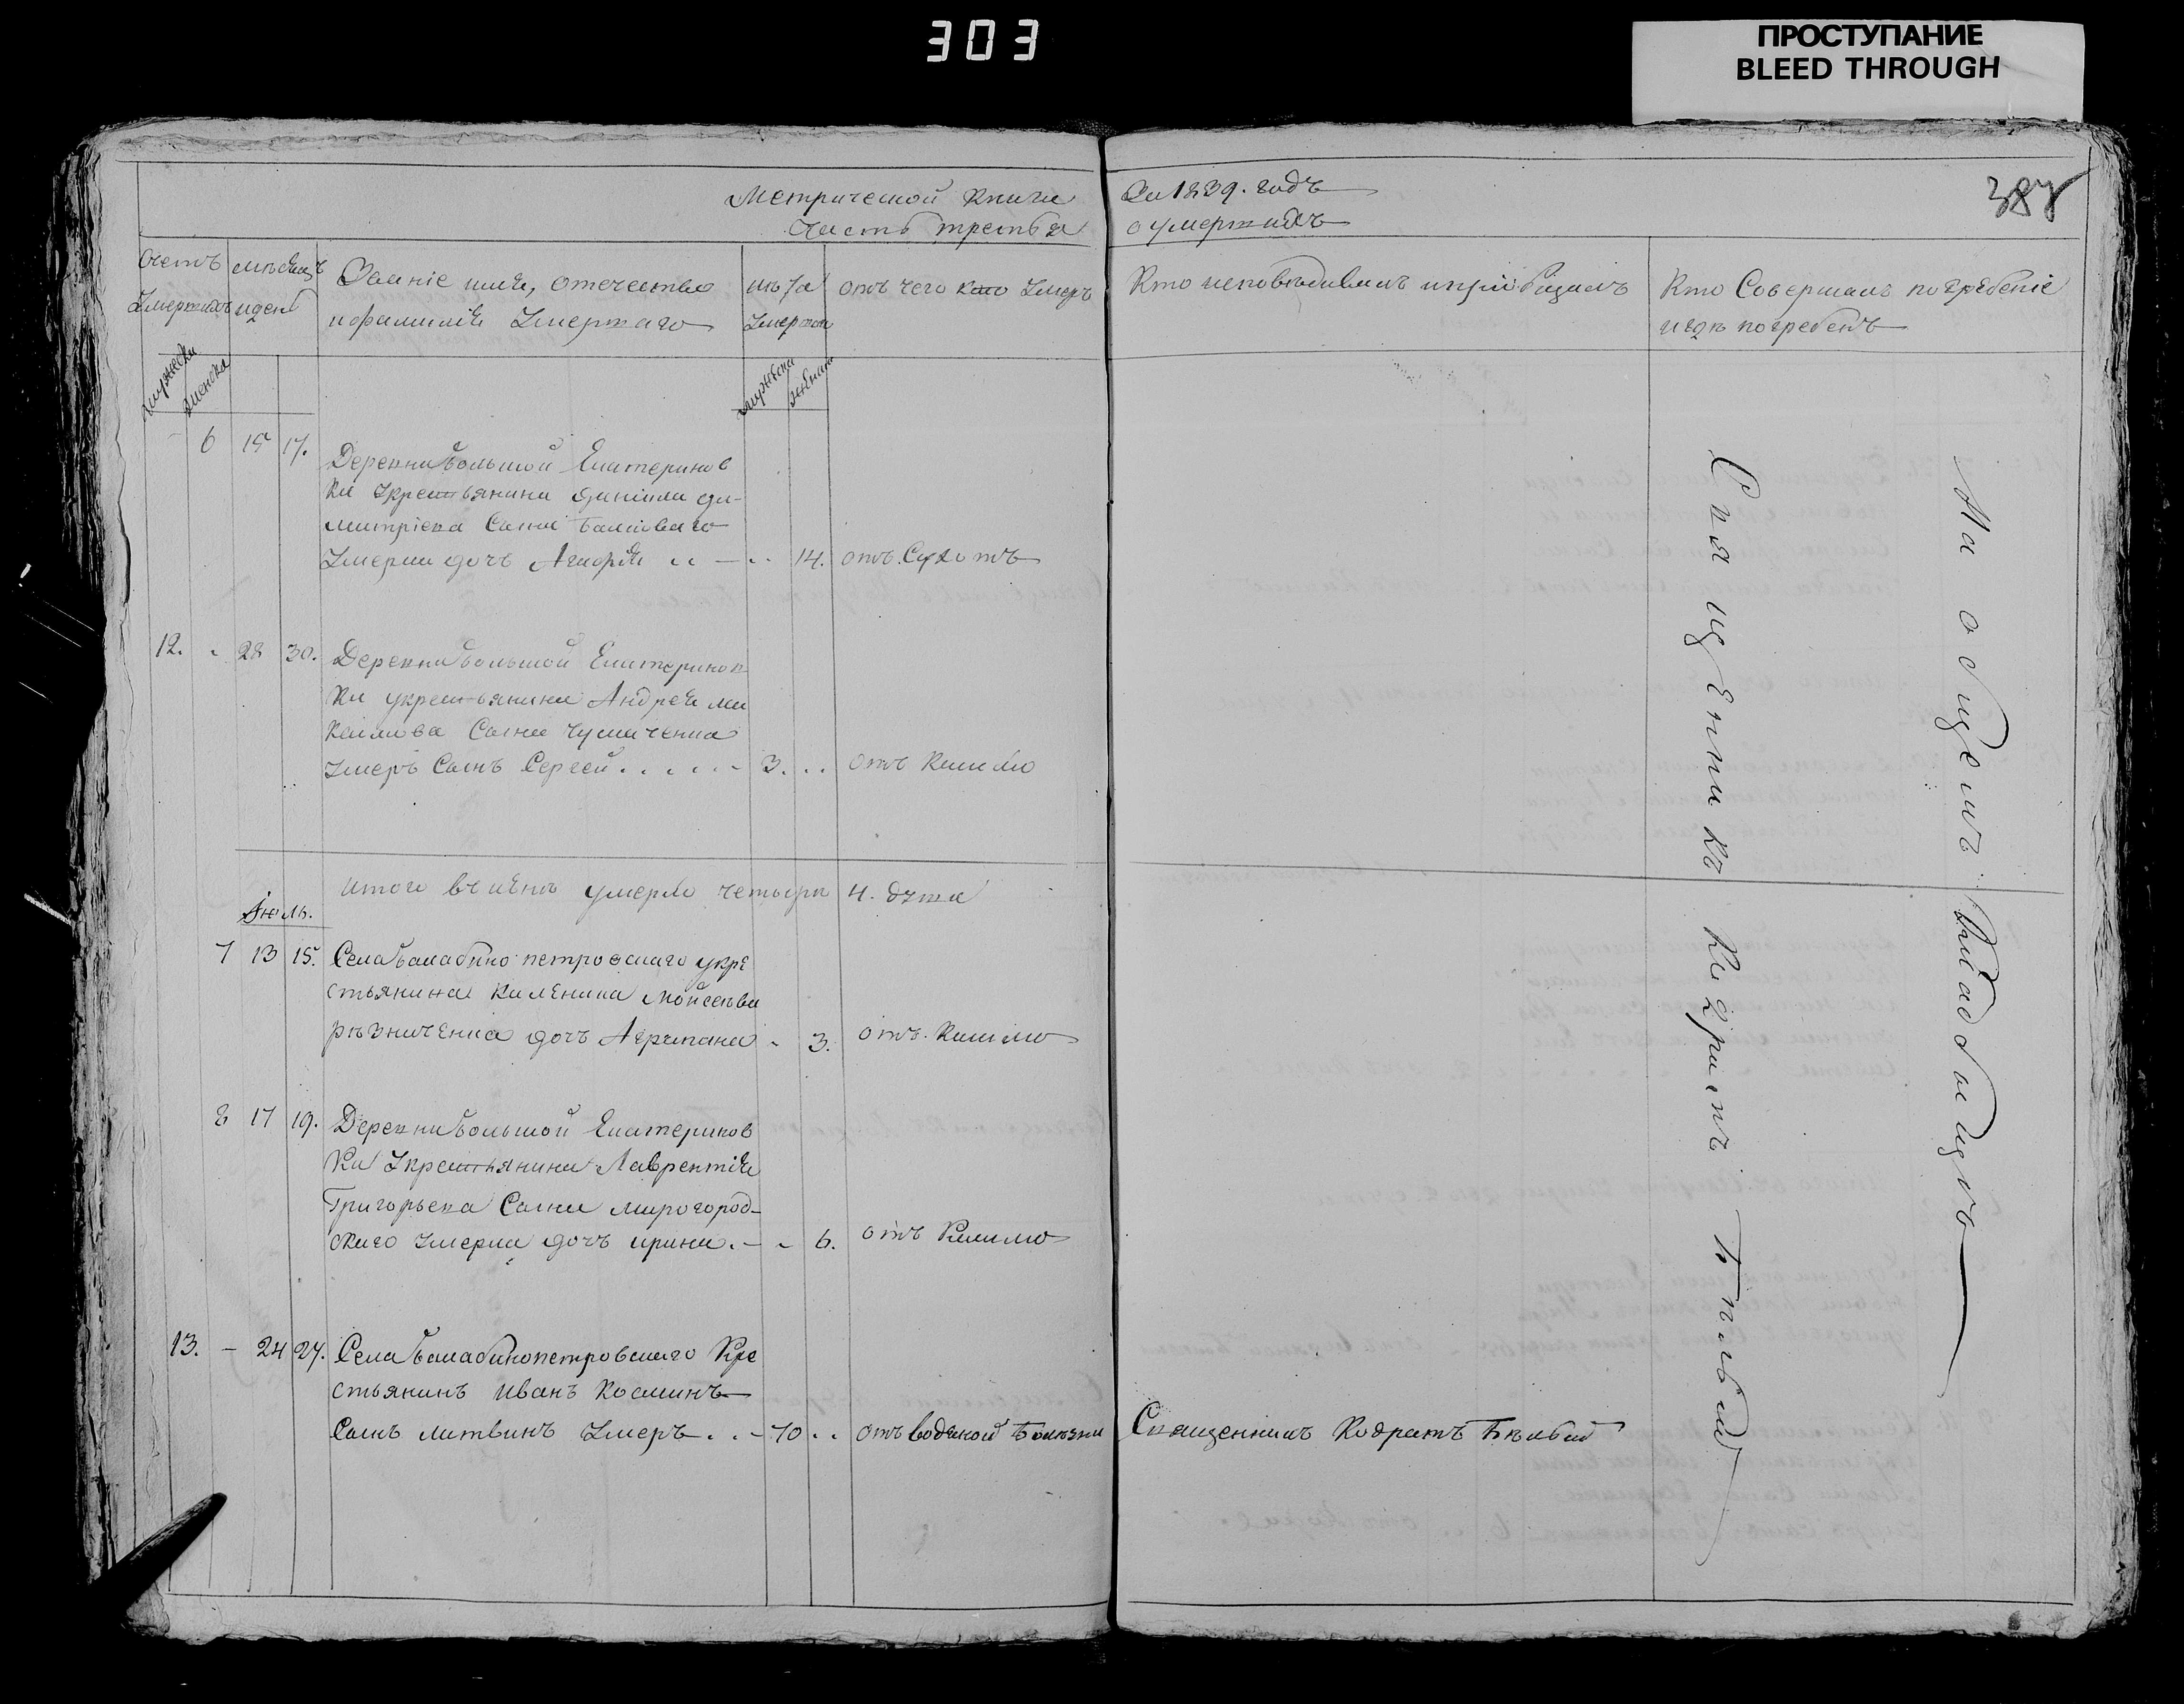 303
ПРОСТУПАНИЕ
BLEED THROUGH
387
Метрической книги
на 1839. годъ
Часть третья
о умершихъ
Счетъ умершихъ
мѣсяцъ и день
Званіе имя, отечество
и фамилія умершаго
лѣта умершаго
отъ чего кто умеръ
Кто исповѣдывалъ и пріобщалъ
Кто совершалъ погребеніе
и гдѣ погребенъ
мужеска
женска
мужеска
женска
6 15 17. Деревни большой Екатеринов
ки у крестьянина Даніила Ди-
митріева сына
умерла дочь Агафія 14. отъ сухотъ
12. 28 30. Деревни большой Екатеринов
ки у крестьянина Андрея Ми
хаилова сына Чумаченка
умеръ сынъ Сергей 3. отъ кашлю
итого въ іюнѣ умерло четыри 4. душа
Іюль.
7 13 15. Села балабино петровскаго у кре
стьянина Калѣника Мойсеева
рѣзниченка дочь Агрипина 3. отъ кашлю
8 17 19. Деревни большой Екатеринов
ки у крестьянина Лаврентія
Григорьева сына миргород-
скаго умерла дочь ирина 6. отъ кашлю
13. - 24 27. Села балабинопетровскаго кре
стьянинъ иванъ Косминъ
сынъ литвинъ умеръ 70 отъ водяной болѣзни
Священникъ Кодратъ Бѣлый
Священникъ Кодратъ Бѣлый
На общемъ кладбищѣ